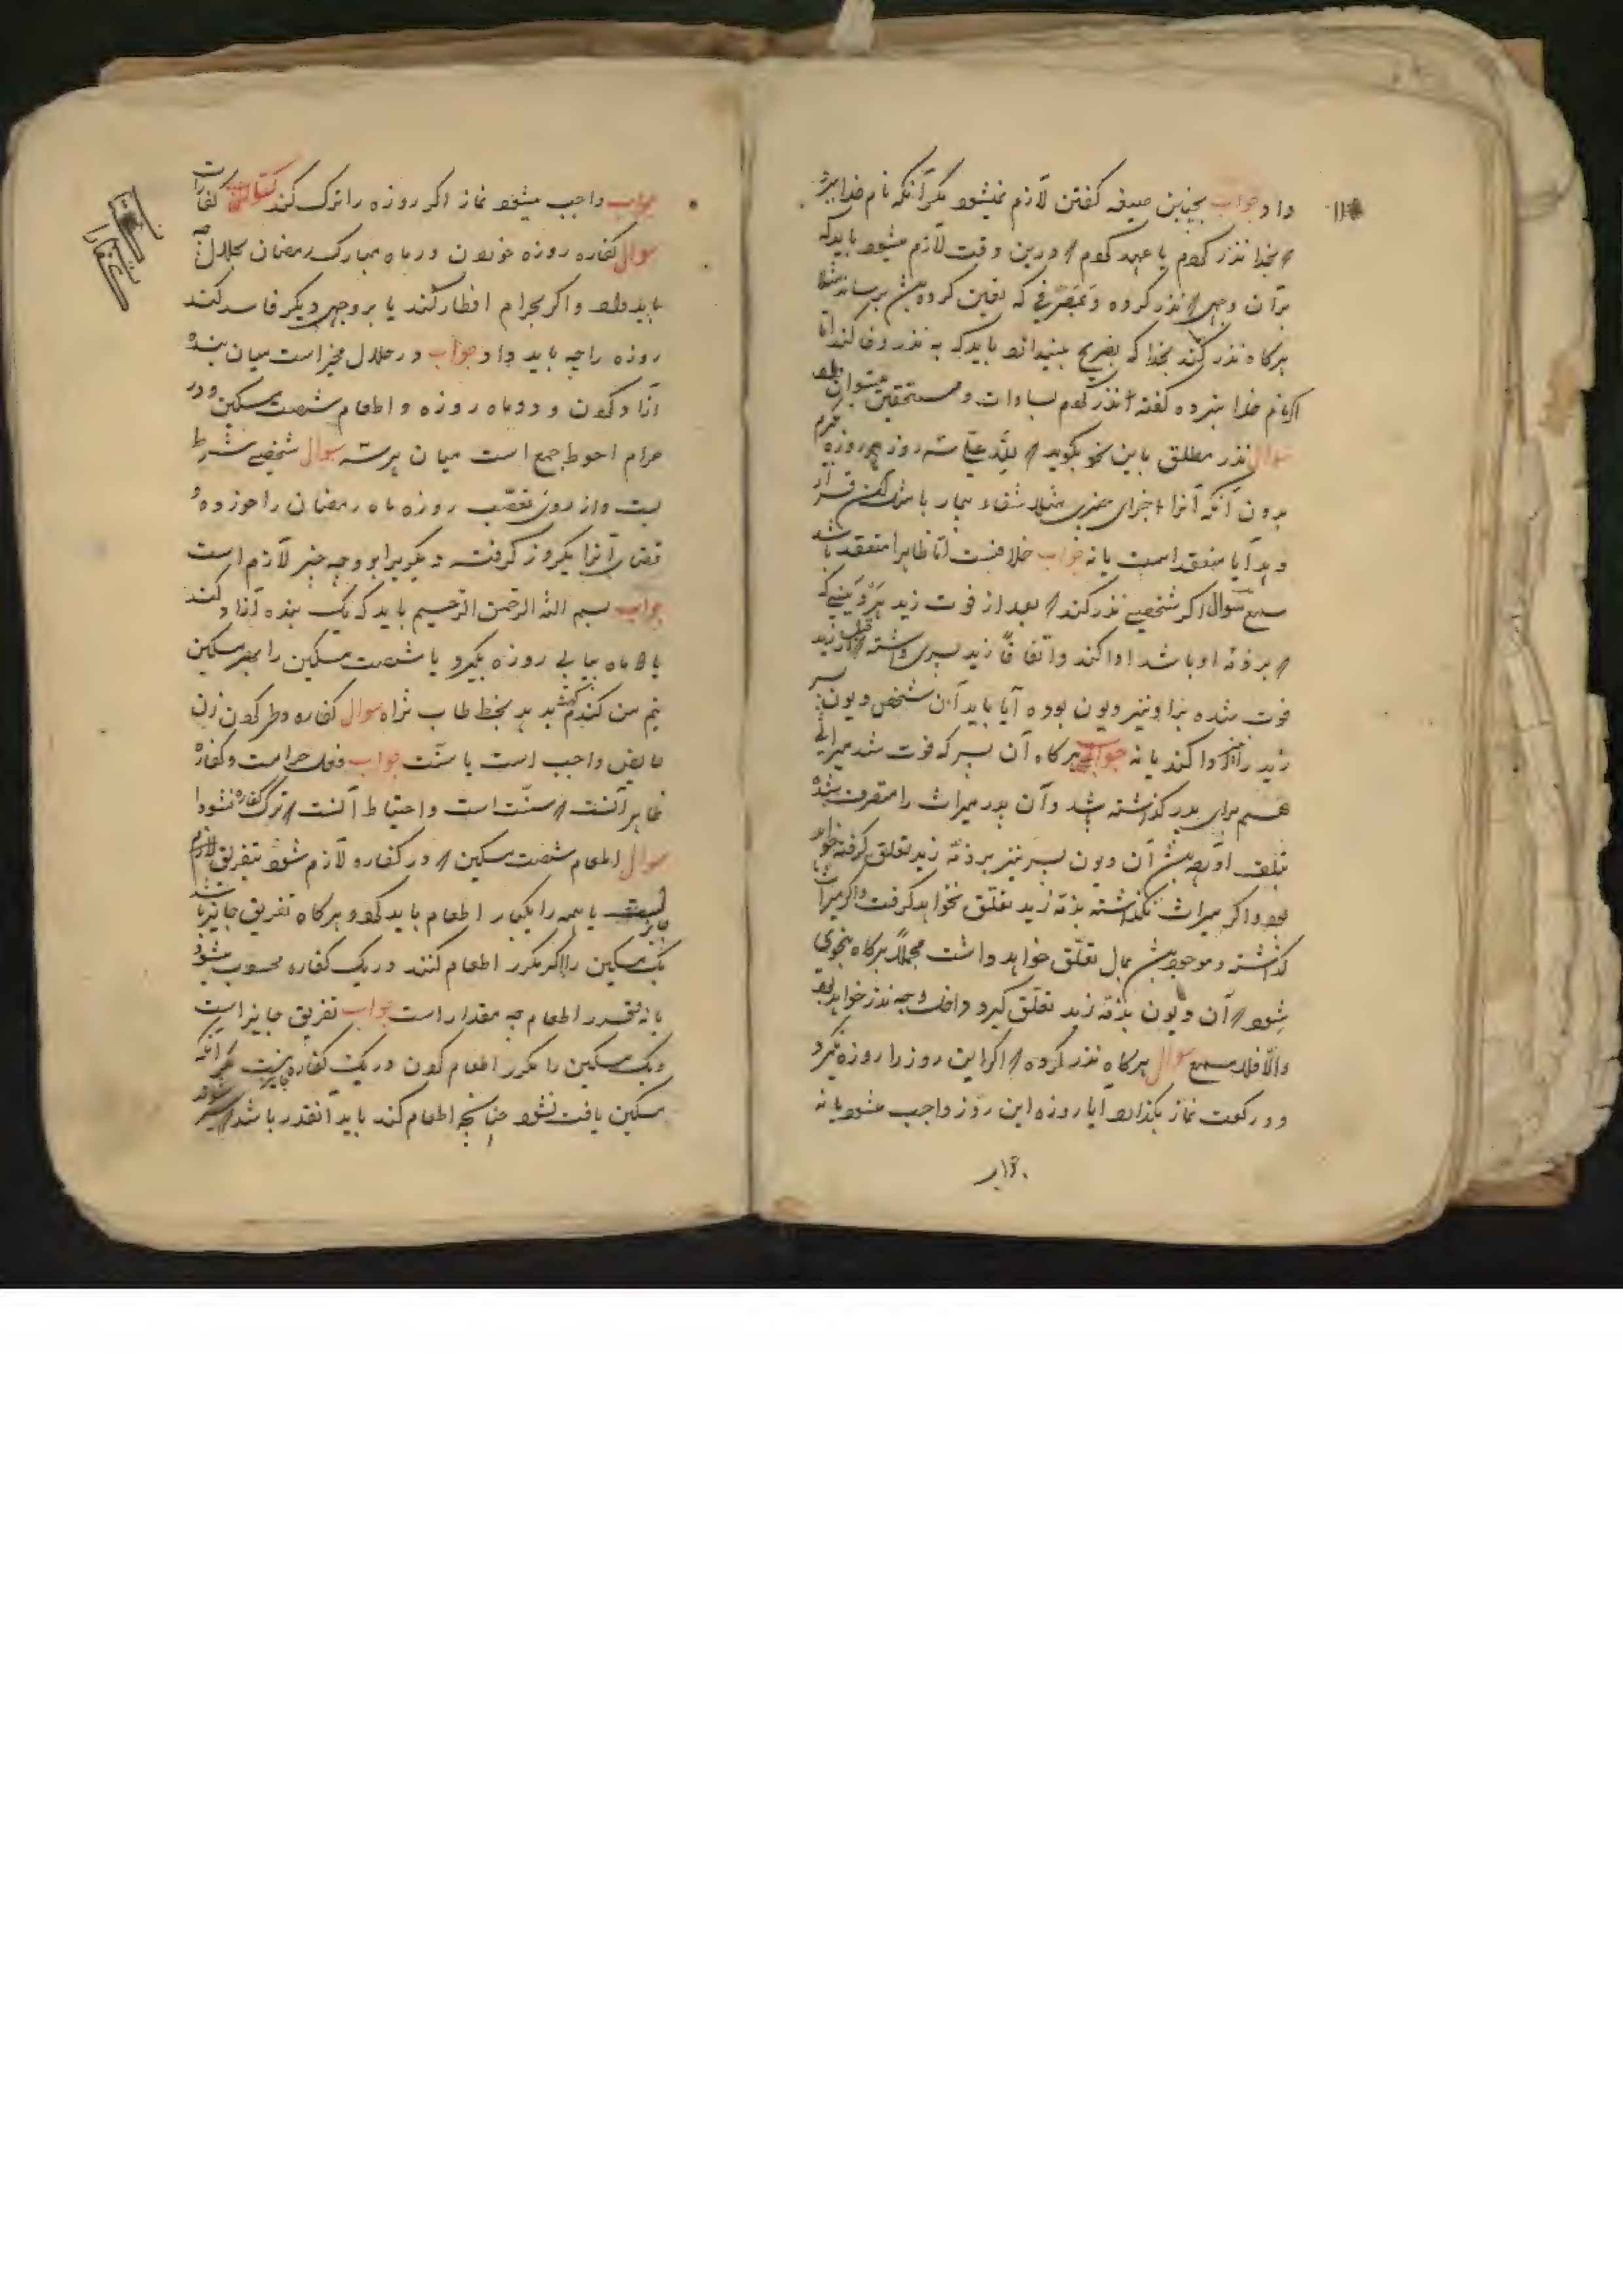 داد جواب بچنین صیغه گفتن لازم نمیشود مگر آنکه نام خدا ببرد
که بخدا نذر کردم یا عهد کردم که درین وقت لازم میشود باید که
بر آن وجهی که نذر کرده و بمصرفی که تعین کرده برساند
هرگاه نذر کند بخدا که بضریح باید که به نذر وفا کند اما
اگر نام خدا نبرده گفته نذر کردم بسادات و مستحقین میتوان داد
سوال نذر مطلق باین نحو بگوید که لله علی سه روز روزه بگیرم
بدون آنکه آنرا جزای چیزی مثلا شفاء بیمار یا مثل آن قرار
دهد آیا منعقد است یا نه جواب خلافست اما ظاهرا منعقد باشد
سمیع سوال اگر شخصی نذر کند که بعد از فوت زید هر دینی که
که بر ذمه او باشد ادا کند و اتفاقا زید پسری داشته که قبل از زید
فوت شده بر او نیز دیون بوده آیا باید آن شخص دیون پسر
زید را نیز ادا کند یا نه جواب هرگاه آن پسر که فوت شد میراثی
هم برای پدر گذاشته شد و آن پدر میراث را متصرف شده
تلف آن دیون پسر نیز بر ذمه زید تعلق گرفته خواهد
بود و اگر میراث نگذاشته بذمه زید تعلق نخواهد گرفت و اگر میراث
گذاشته و موجود بمال تعلق خواهد داشت مجملا هرگاه بنحوی
شود که آن دیون بذمه زید تعلق گیرد داخل وجه نذر خواهد بود
والا فلا سمیع سوال هرگاه نذر کرده که اگر این روز را روزه نگیرد
دو رکعت نماز بگذارد آیا روزه این روز واجب میشود یا نه
جواب واجب میشود نماز اگر روزه را ترک کند کتاب کفارات
سوال کفاره روزه خوردن در ماه مبارک رمضان بحلال چه
باید داد و اگر بحرام افطار کند یا بر وجهی دیگر فاسد کند
روزه را چه باید داد جواب در حلال مخیر است میان بنده
آزاد کردن و دو ماه روزه و اطعام شصت مسکین و در
حرام احوط جمع است میان هر سه سوال شخصی شرط
بست و از روی تعصب روزه ماه رمضان را خورده و
قضای آنرا یکروز گرفته دیگر برابر وجه چیز لازم است
جواب بسم الله الرحمن الرحیم باید که یک بنده آزاد کند
یا دو ماه پیاپی روزه بگیرد یا شصت مسکین را بهر مسکین
نیم من گندم بدهد بخط طاب ثراه سوال کفاره وطی کردن زن
حایض واجب است یا سنت جواب فعل حرامست و کفاره
ظاهر آنست که سنت است و احتیاط آنست که ترک کفاره نشود
سوال اطعام شصت مسکین که در کفاره لازم شود بتفریق
جایز یا همه را یکبار اطعام باید کرد و هرگاه تفریق جایز باشد
یک مسکین را اگر مکرر اطعام کنند در یک کفاره محسوب میشود
یا نه و قدر اطعام چه مقدار است جواب تفریق جایز است
و یک مسکین را مکرر اطعام کردن در یک کفاره جایز نیست مگر آنکه
مسکین یافت نشود چنانچه اطعام کند باید آنقدر باشد که سیر شوند